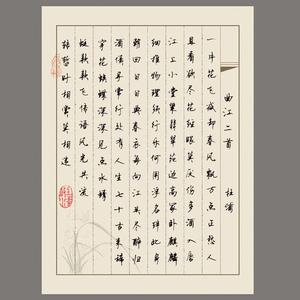 曲江二首
杜甫
一片花飞减却春风飘万点正愁人
且看欲尽花经眼莫厌伤多酒入唇
江上小堂巢翡翠苑边高冢卧麒麟
细推物理须行乐何用浮名绊此身
朝回日日典春衣每向江头尽醉归
酒债寻常行处有人生七十古来稀
穿花蛱蝶深深见点水蜻
蜓款款飞传语风光共流
转暂时相赏莫相违